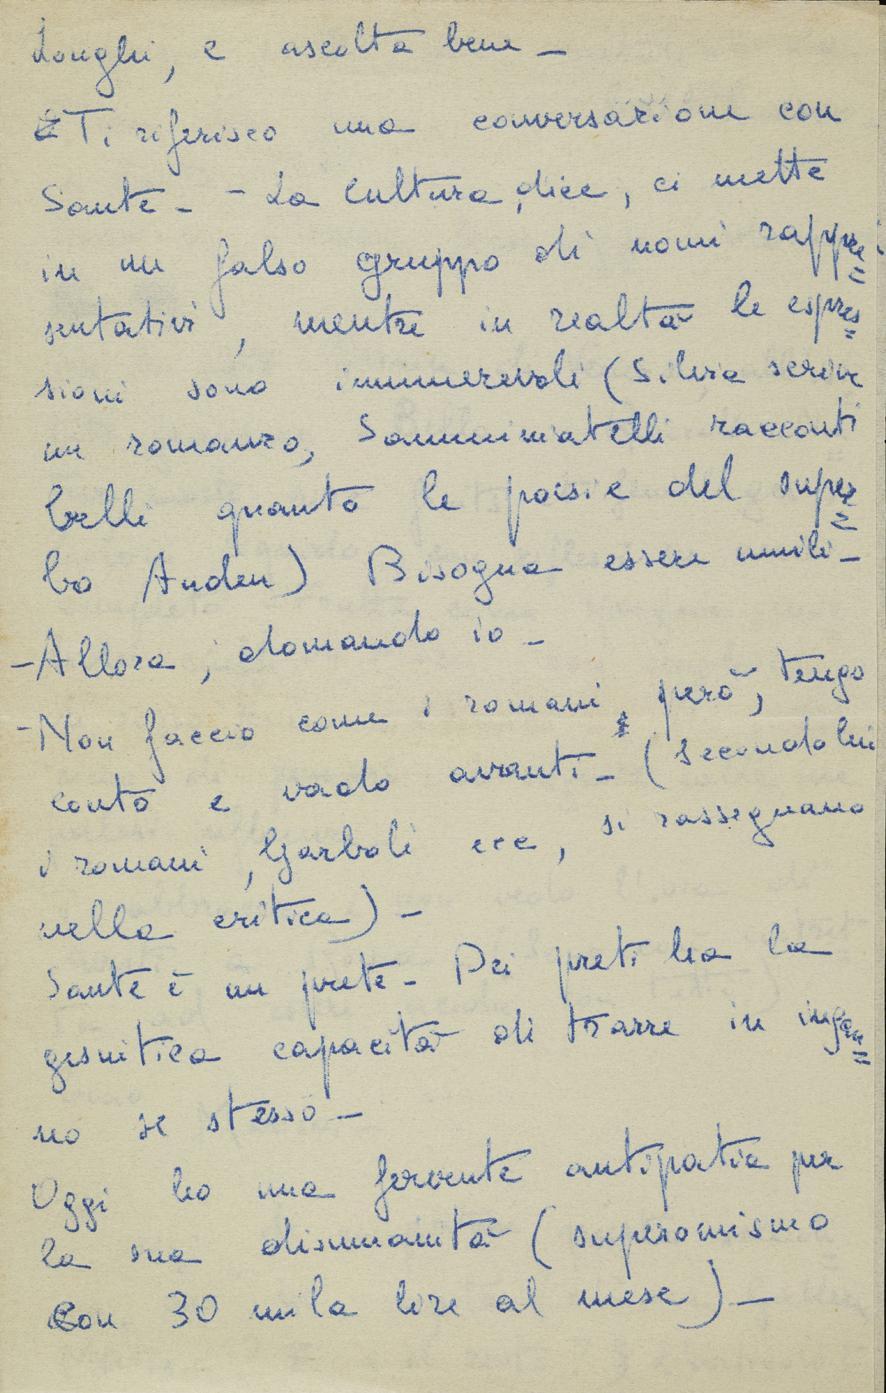 Longhi, e ascolta bene –
Ti riferisco una conversazione con
Sante – – La Cultura, dice, ci mette
in un falso gruppo di nomi rappre=
sentativi, mentre in realtà le espres=
sioni sono innumerevoli (Silvia scrive
un romanzo, Samminiatelli racconti
belli quanto le poesie del super=
bo Auden) Bisogna essere umili –
– Allora, domando io –
– Non faccio come i romani, però, tengo
conto e vado avanti – (secondo lui
i romani, Garboli ecc, si rassegnano
nella critica) –
Sante è un prete – Dei preti ha la
gesuitica capacità di trarre in ingan=
no se stesso –
Oggi ho una fervente antipatia per
la sua disumanità (superomismo
con 30 mila lire al mese) –